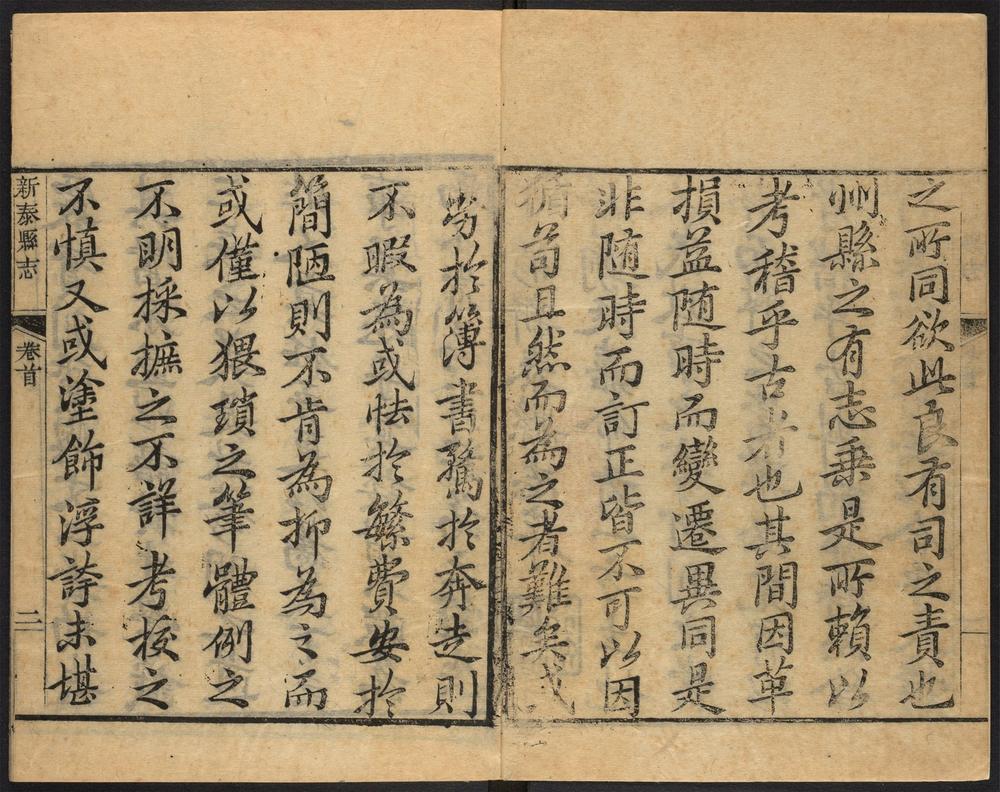 之所同欲此良有司之責也
州縣之有志乗是所賴以
考稽乎古者也其間因革
損益随時而變遷異同是
非随時而訂正皆不可以因
循苟且然而為之者難矣或
勞於簿書騖於奔走則
不暇為或怯於繁費安於
簡陋則不肯為抑為之而
或僅以猥瑣之筆體例之
不明採摭之不詳考挍之
不慎又或塗飾浮誇未堪
新泰縣志 卷首 二